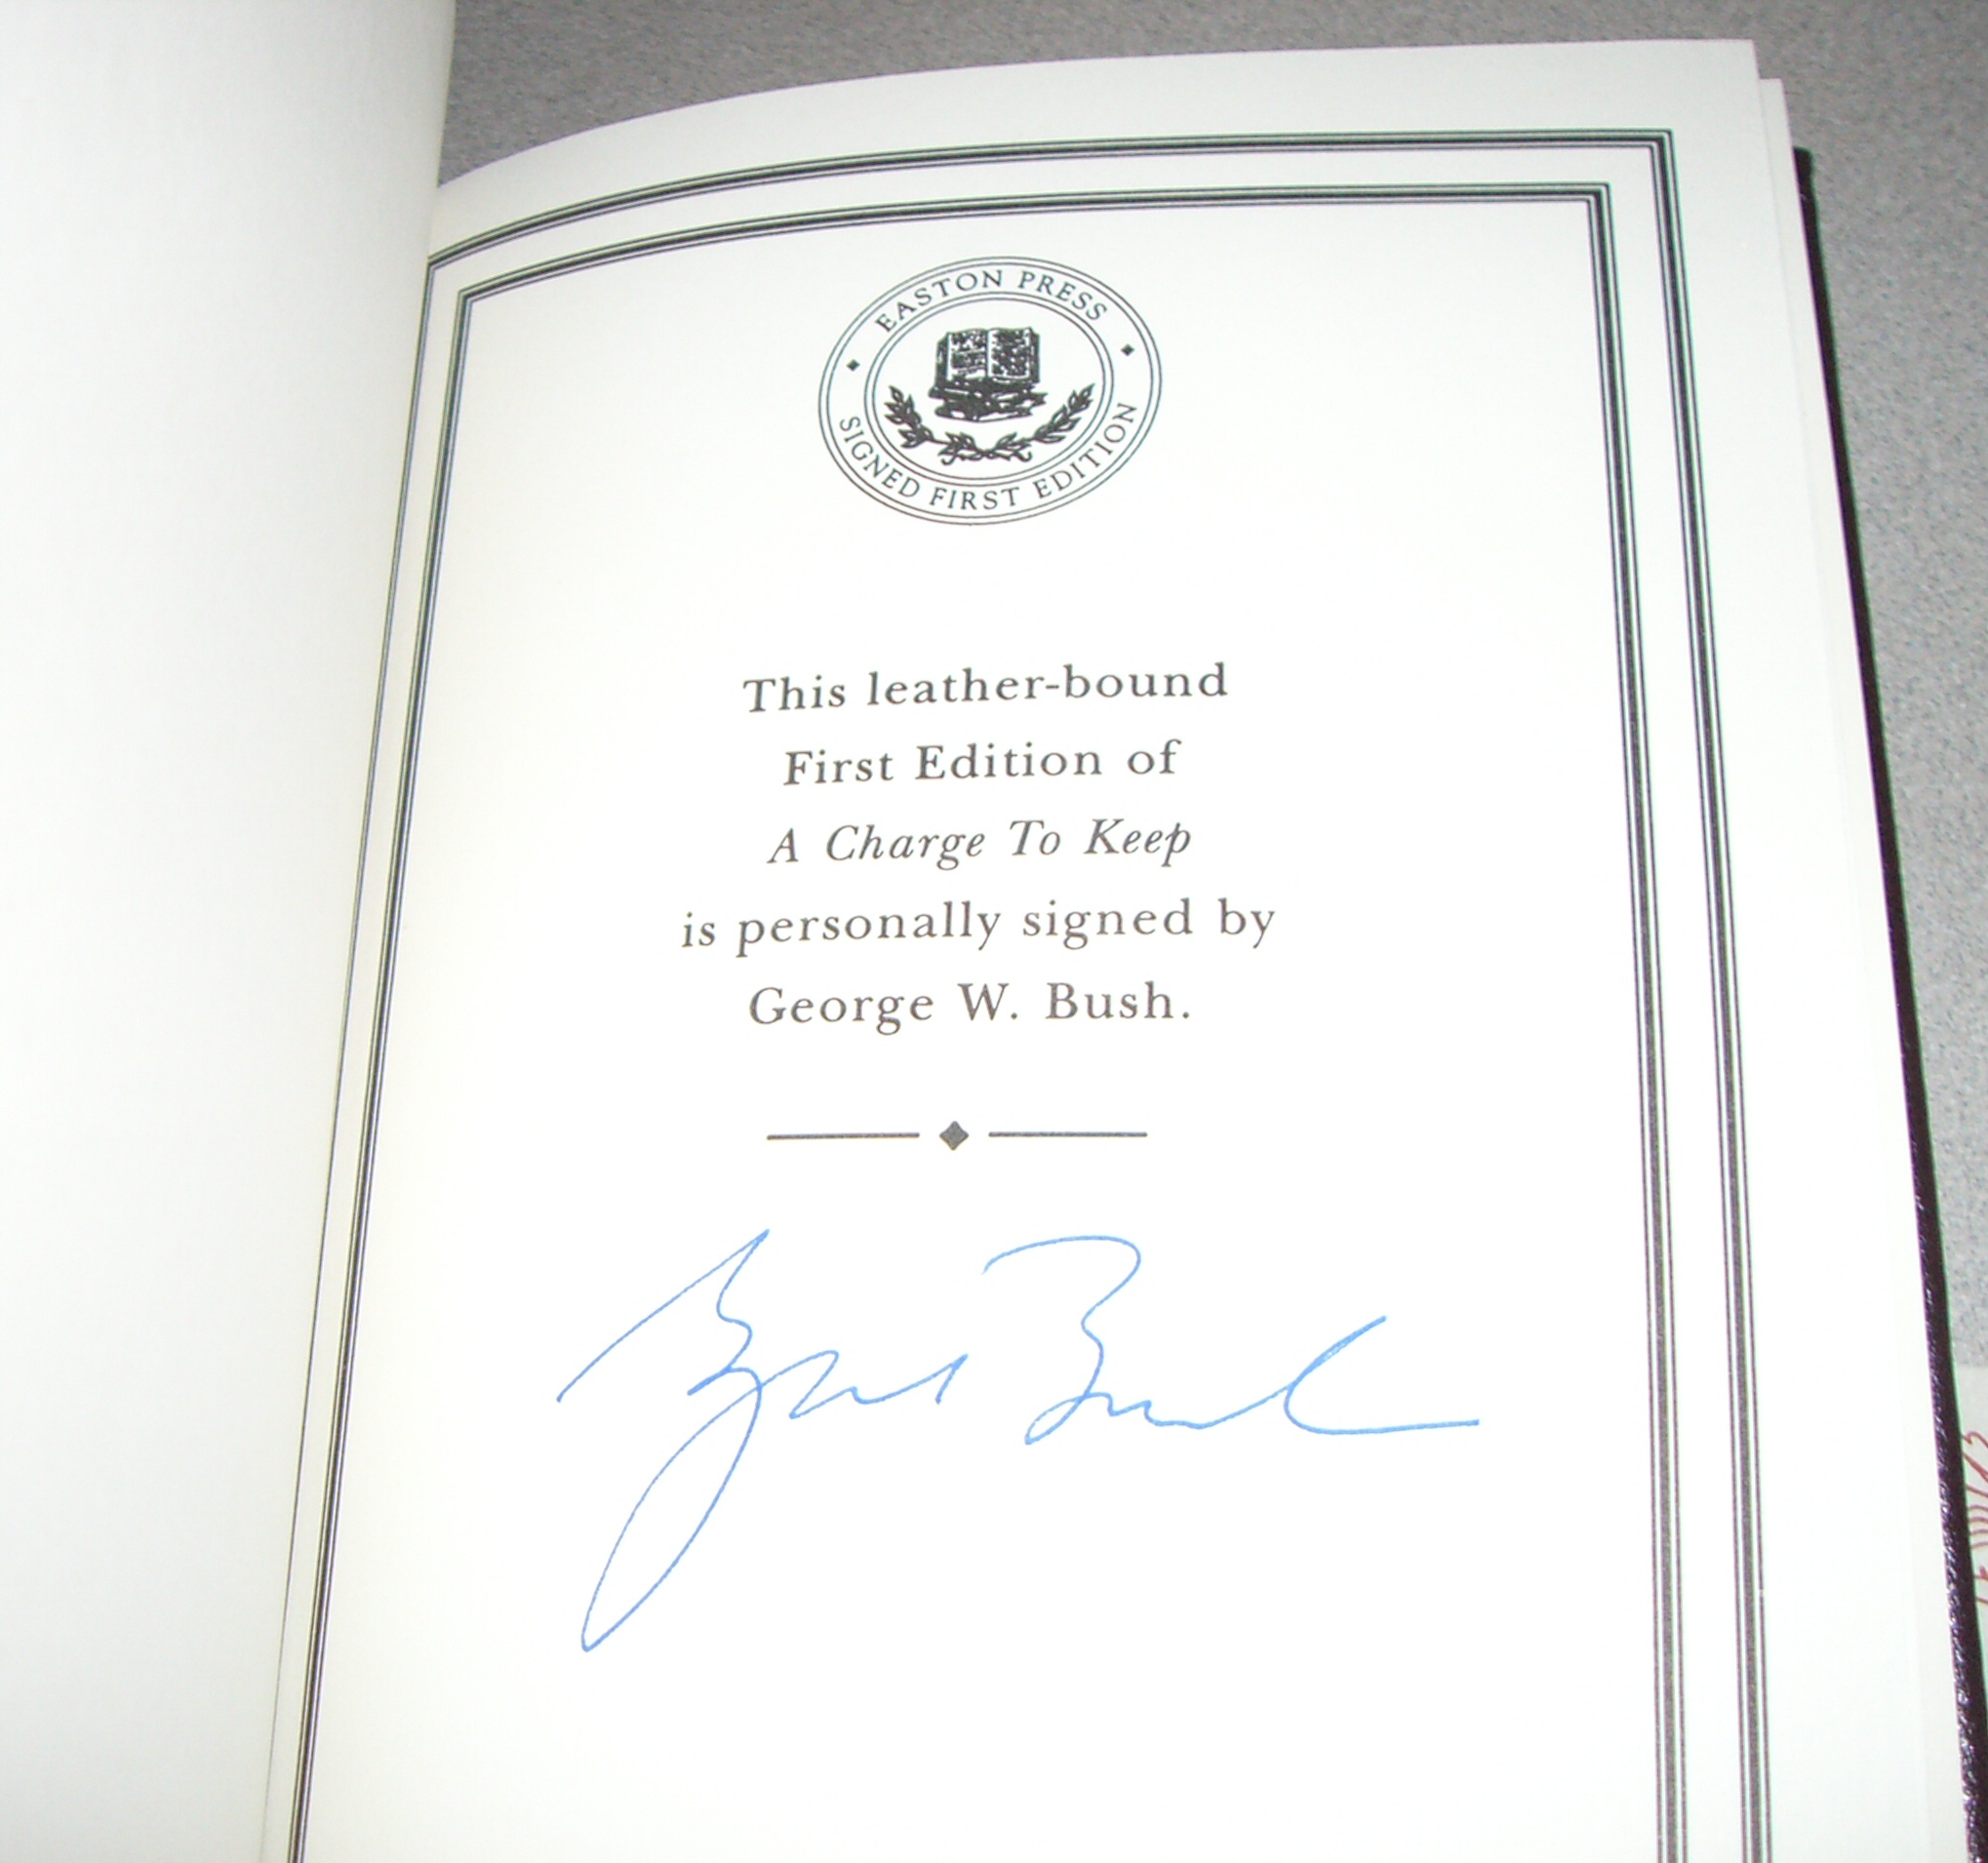 EASTON PRESS
SIGNED FIRST EDITION
This leather-bound
First Edition of
A Charge To Keep
is personally signed by
George W. Bush.